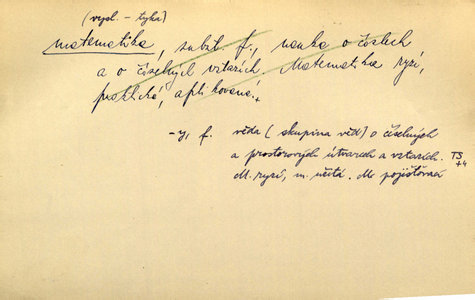 (vysl. - tyka)
matematika, subst. f., nauka o číslech
a o číselných vztazích. Matematika ryzí,
praktická, aplikovaná.
-y, f. věda (skupina věd) o číselných
a prostorových útvarech a vztazích. TS
+4
M. ryzí, m. užitá. M. pojistná